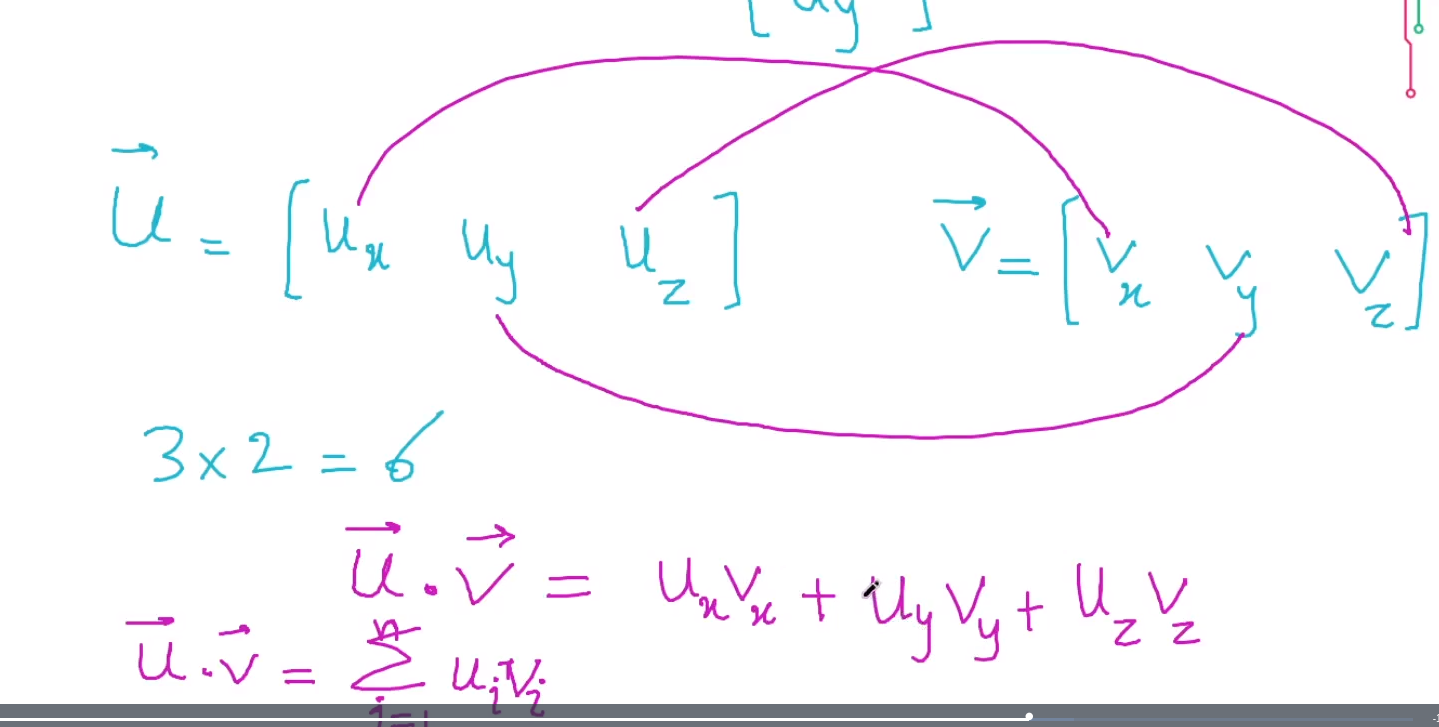 [ uy ]
u⃗ = [ uₓ u_y u_z ] v⃗ = [ vₓ v_y v_z ]
3 × 2 = 6
u⃗ · v⃗ = uₓvₓ + u_y v_y + u_z v_z
u⃗ · v⃗ = ∑ⁿᵢ₌₁ uᵢvᵢ